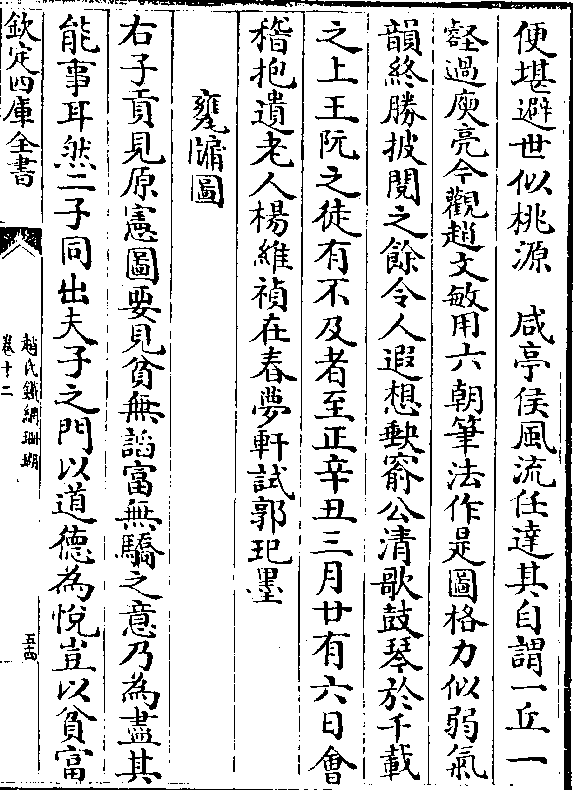 便堪避世似桃源　咸亭侯風流任達其自謂一丘一
壑過庾亮今觀趙文敏用六朝筆法作是圖格力似弱氣
韻終勝披閱之餘令人遐想欵窾公清歌鼓琴於千載
之上王阮之徒有不及者至正辛丑三月廿有六日會
稽抱遺老人楊維禎在春夢軒試郭玘墨
甕牖圖
右子貢見原憲圖要見貧無諂富無驕之意乃為盡其
能事耳然二子同出夫子之門以道德為悅豈以貧富
欽定四庫全書
趙氏鐵網珊瑚
卷十二
五十四